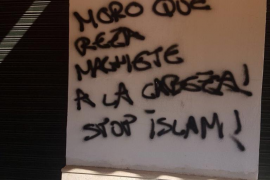 MORO QUE
REZA
MACHETE
A LA CABEZA!
STOP iSLAM!